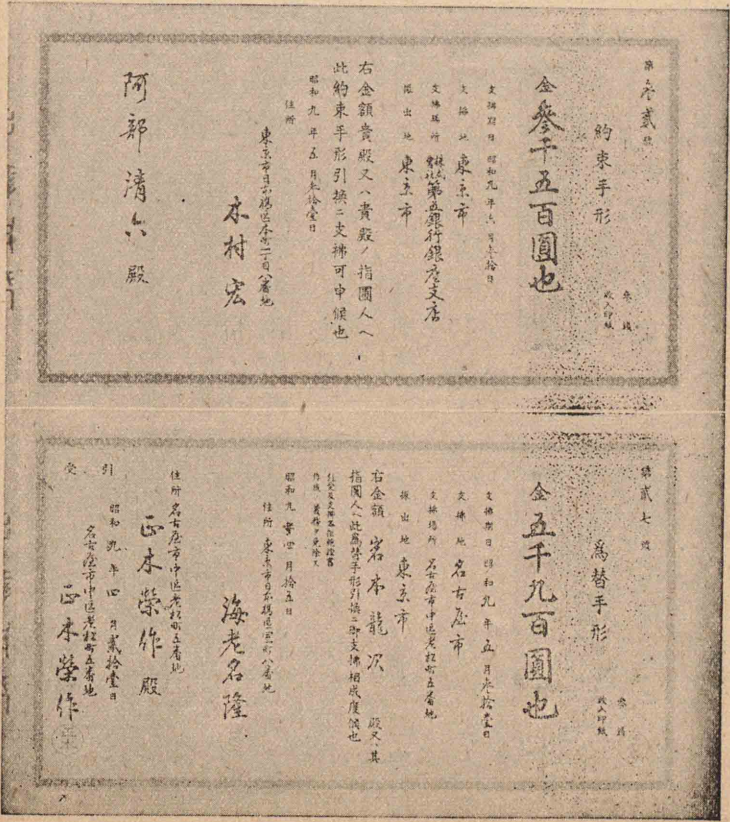 第參貳號
約束手形
參錢
收入印紙
金參千五百圓也
支拂期日 昭和九年六月參拾日
支拂地 東京市
支拂場所 株式會社第五銀行銀座支店
振出地 東京市
右金額貴殿又ハ貴殿ノ指圖人ヘ
此約束手形引換ニ支拂可申候也
昭和九年五月參拾壹日
住所 東京市日本橋區本町二丁目八番地
木村宏
阿部清六殿
第貳七號
爲替手形
參錢
收入印紙
金五千九百圓也
支拂期日 昭和九年五月參拾壹日
支拂地 名古屋市
支拂場所 名古屋市中區老松町五番地
振出地 東京市
右金額 岩本龍次 殿又ハ其
指圖人ヘ此爲替手形引換ニ御支拂相成度候也
引受及支拂拒絶證書
作成ノ義務ヲ免除ス
昭和九年四月拾五日
住所 東京市日本橋區室町八番地
海老名隆
住所 名古屋市中區老松町五番地
正木榮作殿
引受
昭和九年四月貳拾壹日
名古屋市中區老松町五番地
正木榮作